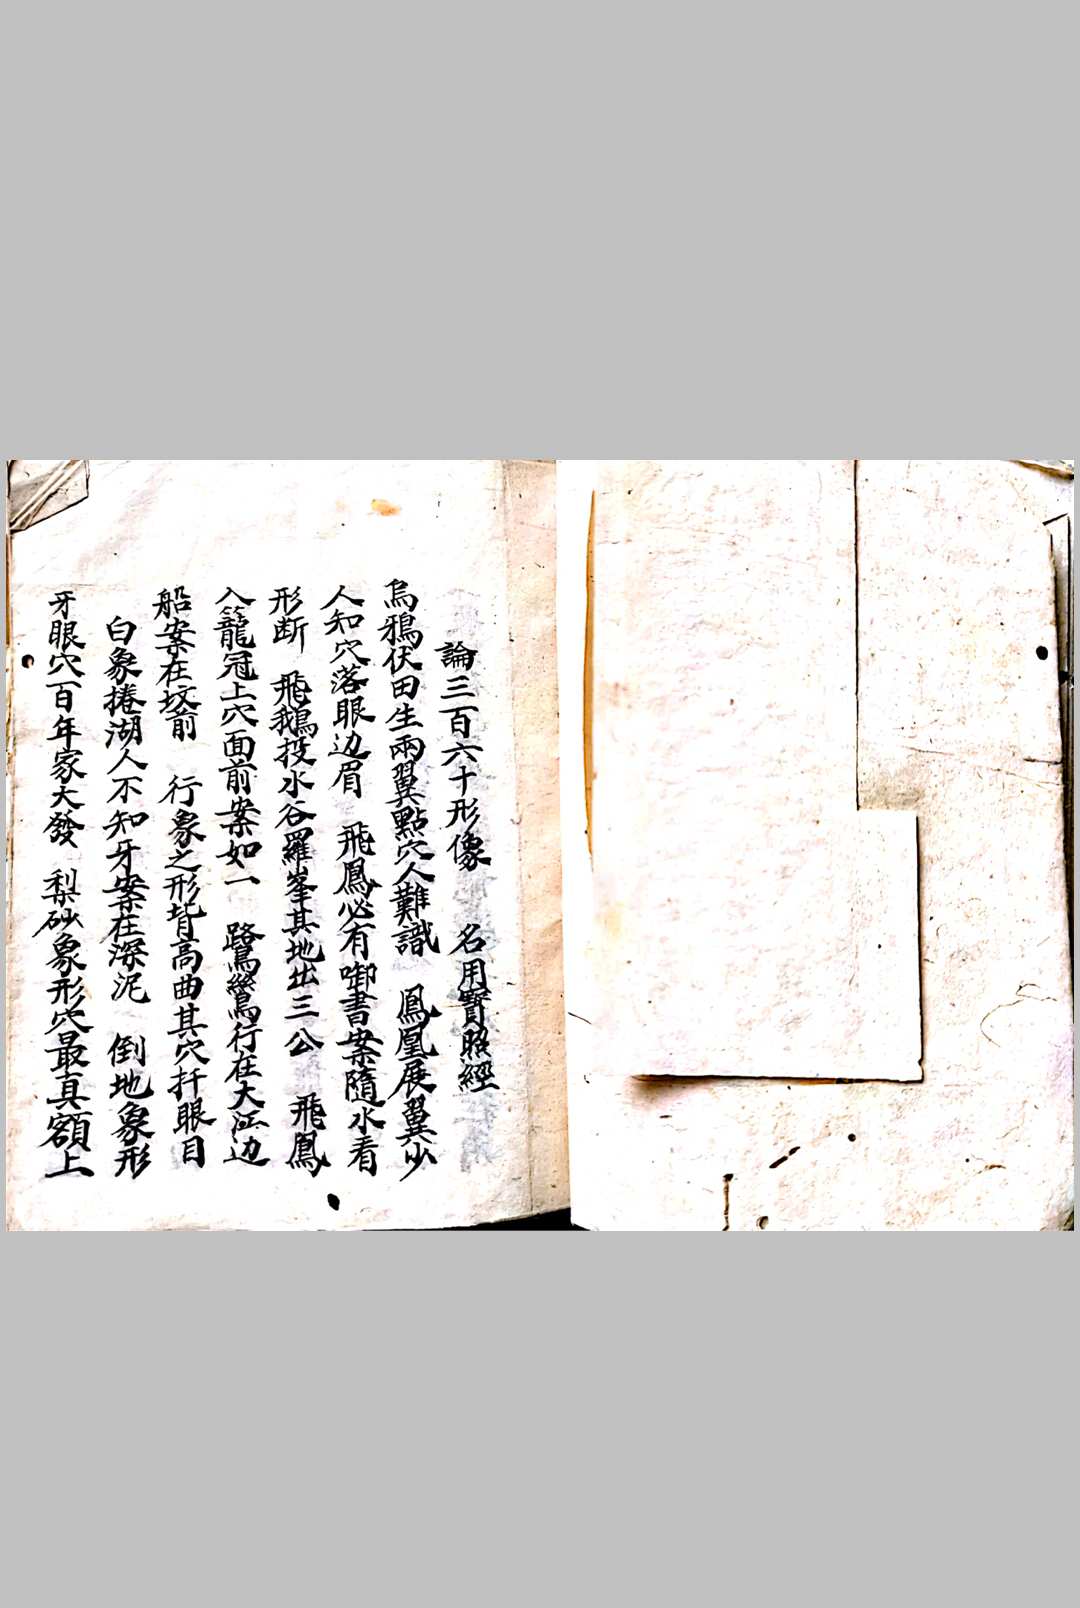 論三百六十形像　名用寳照經
烏鴉伏田生兩翼點穴人難識　鳳凰展翼少
人知穴落眼边眉　飛鳳必有啣書案隨水看
形断　飛鵝投水谷羅峯其地出三公　飛鳳
入籠冠上穴面前案如一　鷺鷥行在大江边
船案在坟前　行象之形皆高曲其穴扦眼目
白象捲湖人不知牙案在深泥　倒地象形
牙眼穴百年家大發　梨砂象形穴最真額上